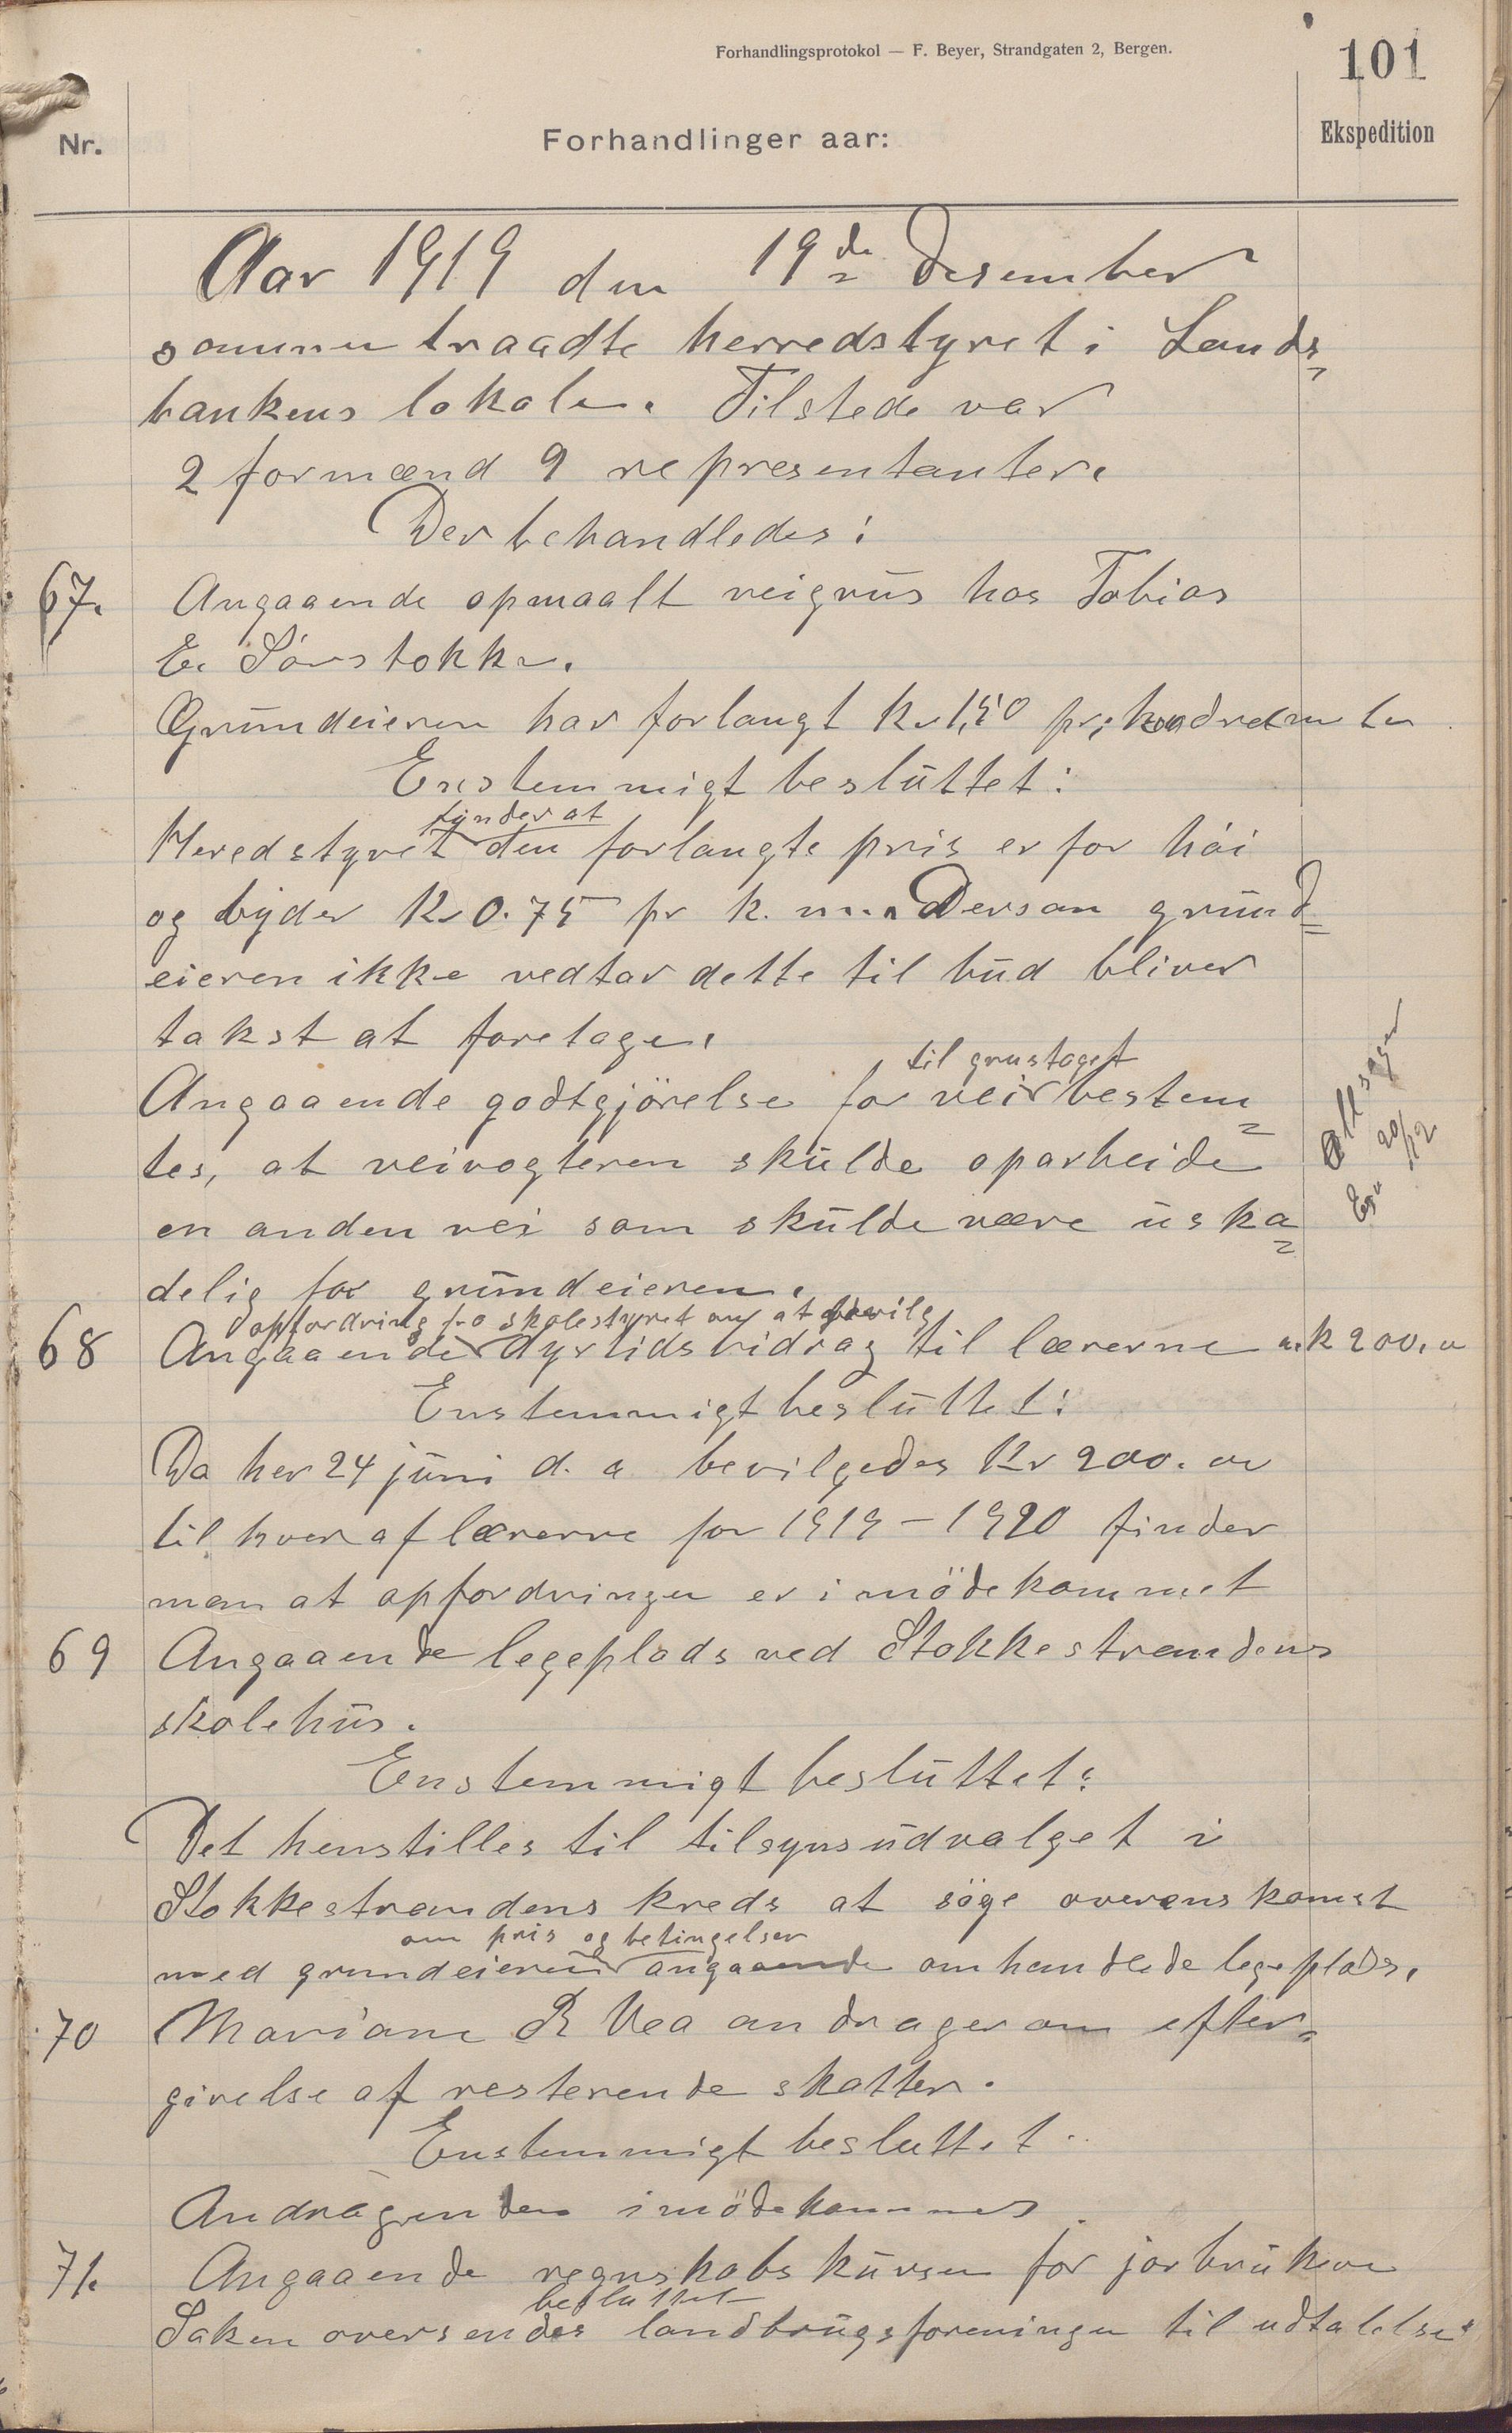 Forhandlingsprotokol — F. Beyer, Strandgaten 2, Bergen.
101
Nr.
Forhandlinger aar:
Ekspedition
Aar 1919 den 19de desember
sammen traadte herredstyret i Lands-
bankens lokale. Tilstede var
2 formænd 9 representanter.
Der behandledes:
67. Angaaende opmaalt veigrus hos Tobias
E. Sørstokke.
Grundeieren har forlangt Kr 1,50 pr.
Enstemmigt besluttet:
finder at
Heredstyret den forlangte pris er for høi
og byder Kr 0.75 pr k. m. Dersom grund=
eieren ikke vedtar dette tilbud bliver
takst at foretage.
til grustaget
Angaaende godtgjörelse for vei bestem=
tes, at veivogteren skulde oparbeide
en anden vei som skulde være uska=
delig for grundeieren.
20/12
opfordring fra skolestyret om at bevilg
68 Angaaende dyrtidsbidrag til lærerne k 200.
Enstemmigt besluttet:
Da her 24 juni d. a bevilgedes Kr 200.
til hver af lærerne for 1919 – 1920 finder
man at opfordringen er imödekommet
69 Angaaende legeplads ved Stokkestrandens
skolehus.
Enstemmigt besluttet:
Det henstilles til tilsynsudvalget i
Stokkestrandens kreds at söge overenskomst
om pris og betingelser
med grundeieren angaaende omhandlede legeplads.
70 Mariane R Vea andrager om efter=
givelse af resterende skatter.
Enstemmigt besluttet:
Andragenden imödekommes.
71. Angaaende regnskabskursen for jorbrukere
besluttet
Saken oversendes landbrugsforeningen til udtalelse.